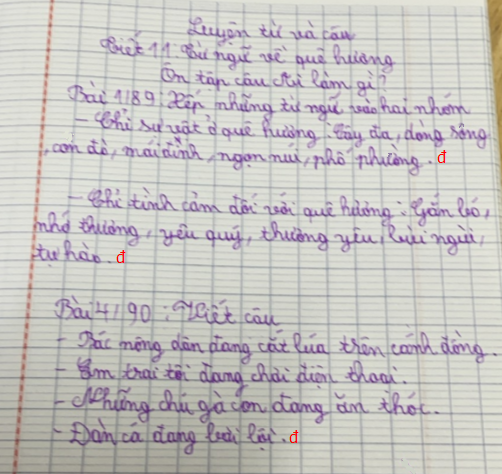 Luyện từ và câu
Tiết 11: Từ ngữ về quê hương
Ôn tập câu Ai làm gì?
Bài 1/89: Xếp những từ ngữ vào hai nhóm
- Chỉ sự vật ở quê hương: Cây đa, dòng sông
, con đò, mái đình, ngọn núi, phố phường. đ
- Chỉ tình cảm đối với quê hương: Gắn bó,
nhớ thương, yêu quý, thương yêu, bùi ngùi,
tự hào. đ
Bài 4/90: Viết câu
- Bác nông dân đang cắt lúa trên cánh đồng.
- Em trai tôi đang chơi điện thoại.
- Những chú gà con đang ăn thóc.
- Đàn cá đang bơi lội. đ